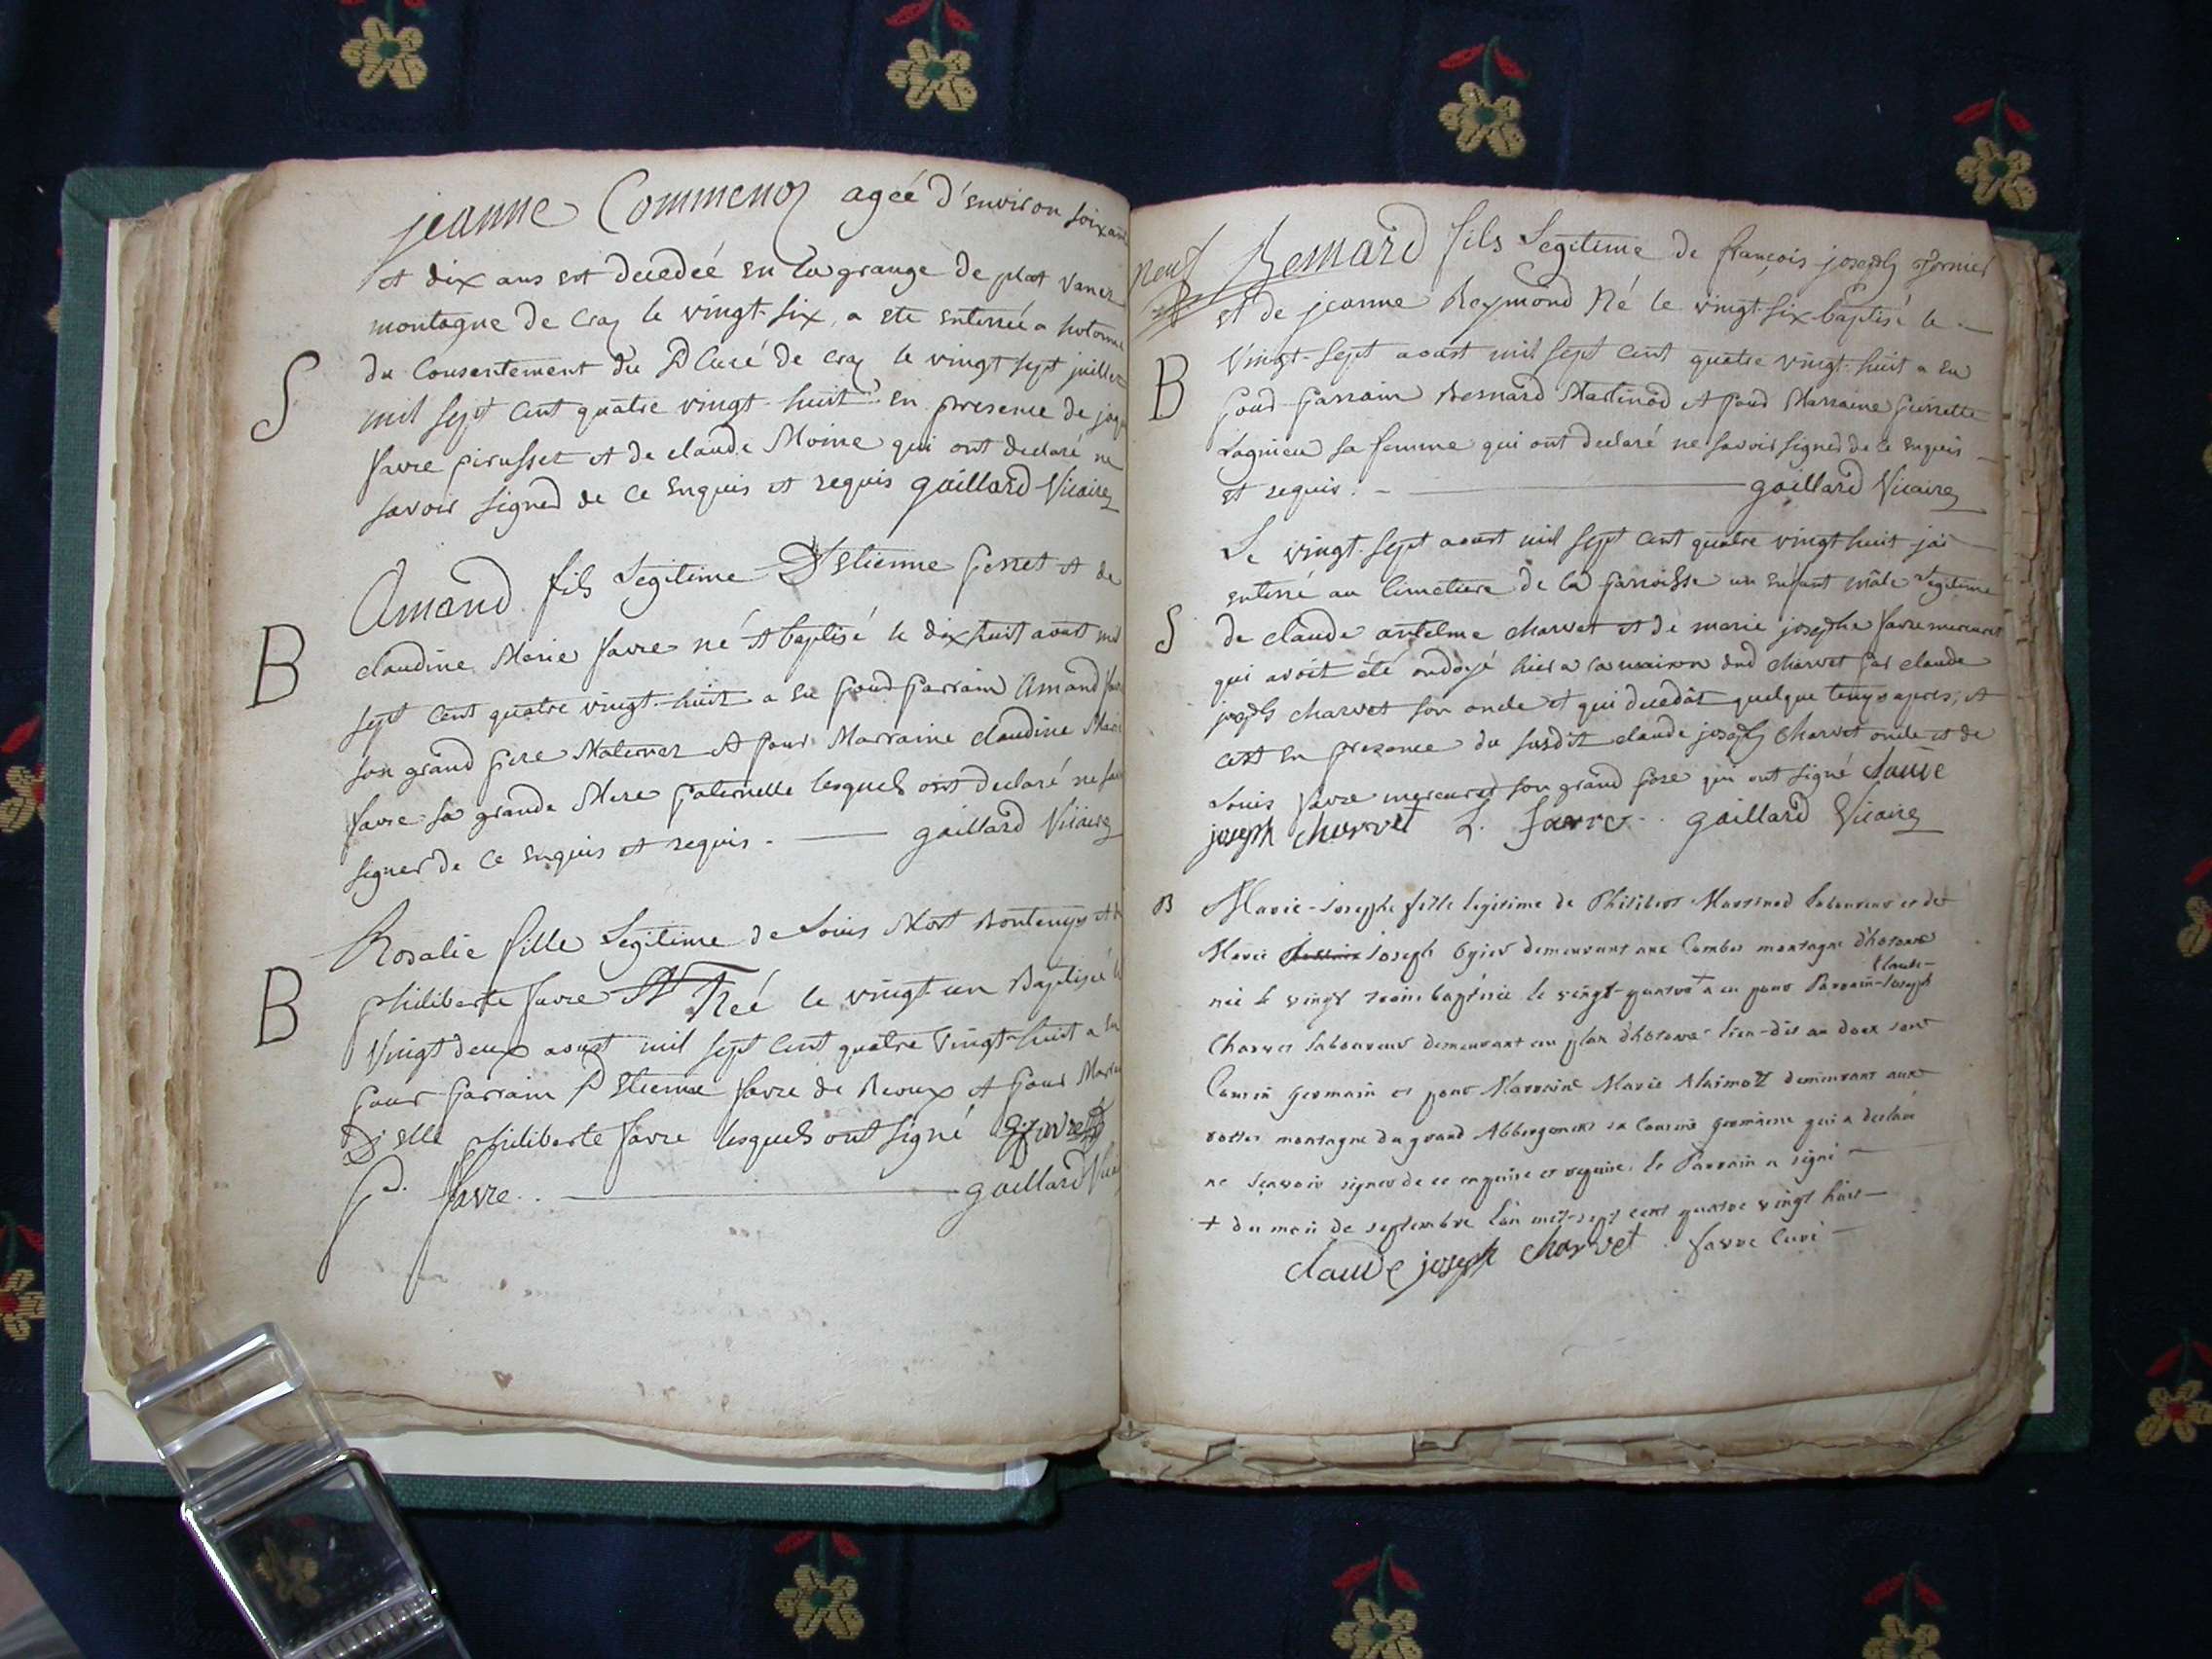 jeanne Commenoz agéé d'environ soixan
et dix ans est decedéé en la grange de plat
montagne de Cray le vingt-six, a ete enterréé a hotonne
S
du Consentement du Sr Curé de Cray le vingt sept juillet
mil sept cent quatre vingt-huit en presence de jaqu
favre pirusset et de claude Moine qui ont declaré ne
savoir signer de ce enquis et requis gaillard Vicaire
Amand fils Legitime D'Etienne perret et de
B
claudine Marie favre né et baptisé le dix huit aoust mil
sept cent quatre vingt-huit a eu pour parrain Amand fav
son grand pere Maternel et pour Marraine claudine Mari
favre sa grande Mere paternelle lesquels ont declaré ne sav
signer de ce enquis et requis. — gaillard Vicaire
Rosalie fille Legitime de Louis Mort Bontemps et d
B
philiberte favre Néé le vingt-un Baptiséé l
vingt deux aoust mil sept cent quatre vingt-huit a eu
pour parrain Sr Etienne favre de Reoux et pour Marra
Dlle philiberte favre lesquels ont signé
p. favre.. — gaillard Vicai
neuf Bernard fils Legitime de françois joseph
et de jeanne Reymond Né le vingt-six baptisé le —
B
Vingt-sept aoust mil sept cent quatre vingt-huit a eu
pour parrain Bernard Martinod et pour Marraine pierrette
Lagnieu sa femme qui ont declaré ne savoir signer de ce enquis
et requis. — gaillard Vicaire
Le vingt-sept aoust mil sept cent quatre vingt-huit j'ai
enterré au cimetiere de la parroisse un enfant mâle legitime
S
de claude antelme charvet et de marie josephe favre mercuret
qui avoit été ondoyé hier a la maison dud charvet par claude
joseph charvet son oncle et qui decedât quelque temps apres; et
cest en presence du susdit claude joseph charvet oncle et de
Louis favre mercuret son grand pere qui ont signé claude
joseph charvet L. favre.. gaillard Vicaire
B Marie-Josephe fille legitime de Philibert Martinod laboureur et de
Marie Joseph Ogier demeurant aux Combes montagne d'hotonne
née le vingt-trois baptisée le vingt-quatre + a eu pour Parrain claude-Joseph
Charvet laboureur demeurant au plan d'hotonne lieu-dit au doux sont
Cousin germain et pour Marraine Marie demeurant aux
montagne du grand Abbergement sa Cousine germaine qui a declaré
ne sçavoir signer de ce enquise et requise. le Parrain a signé —
+ du mois de septembre l'an mil-sept cent quatre vingt huit —
claude joseph charvet. favre Curé —